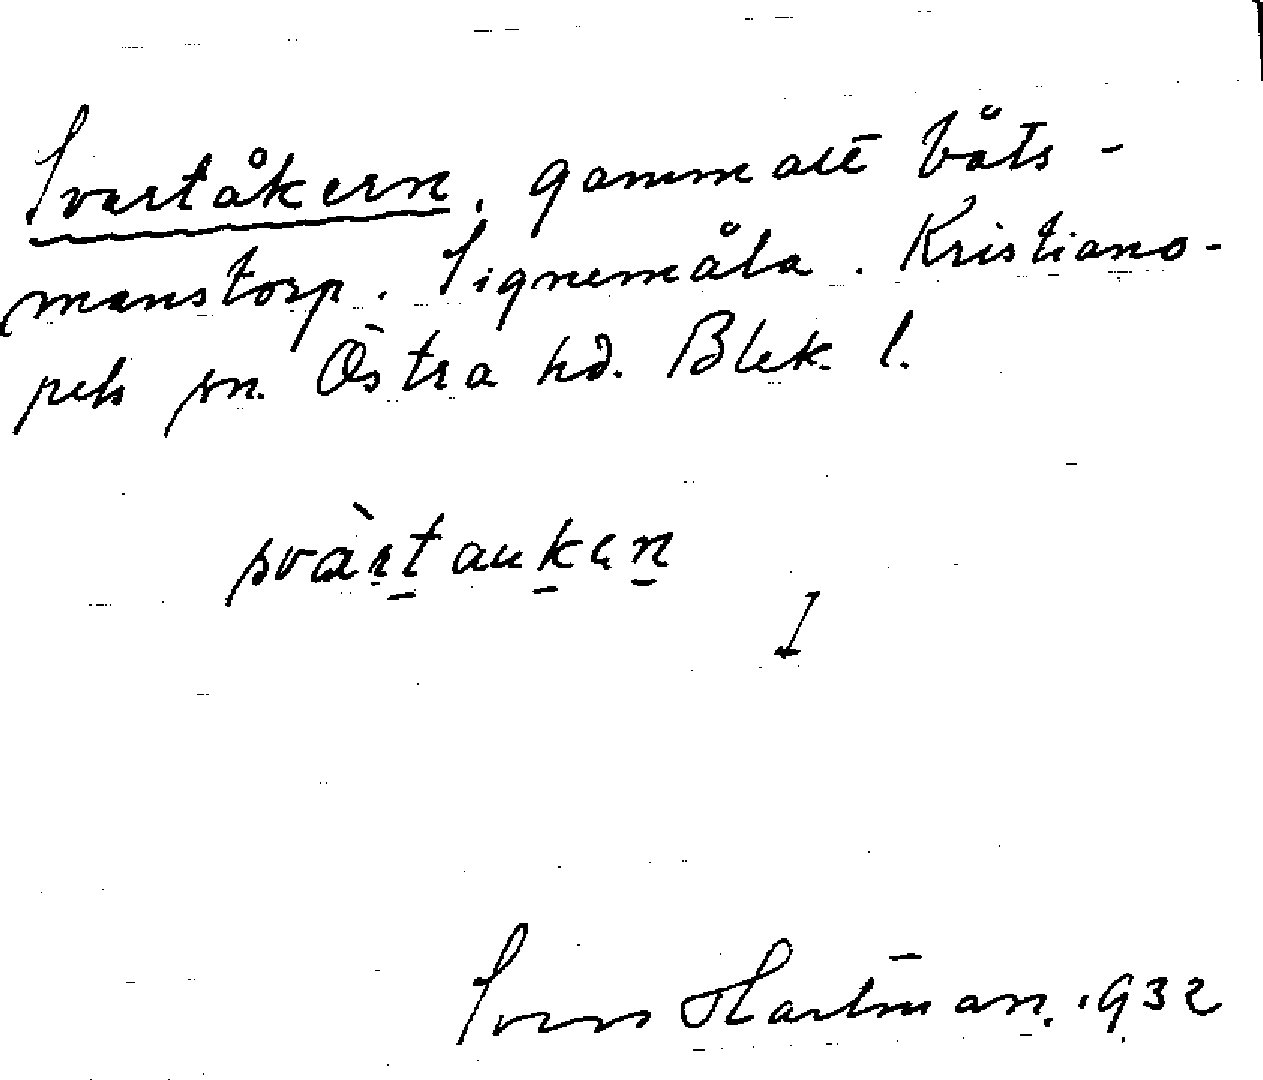 Svartåkern, gammalt båts-
manstorp. Signemåla. Kristiano-
pels sn. Östra hd. Blek. l.
svàrtaukan
I
Sven Hartman. 1932